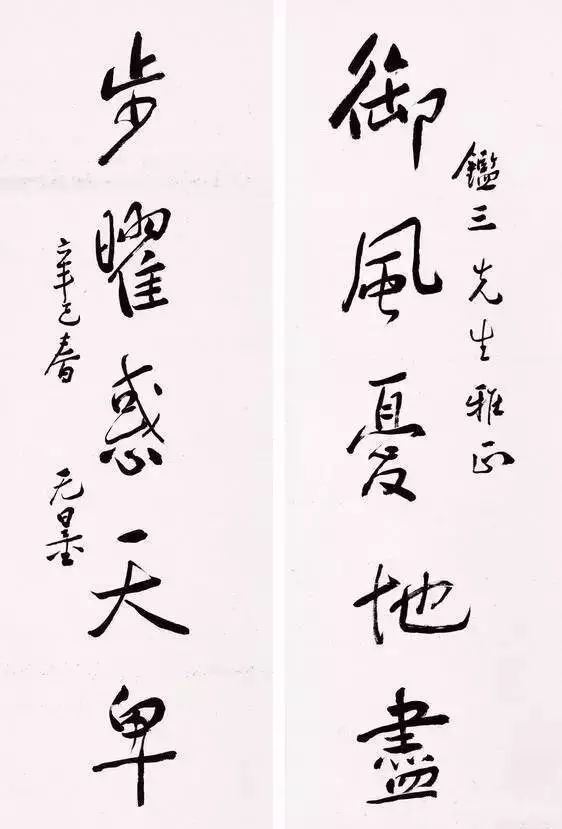 鑑三先生雅正
御風憂地盡
步曜惑天卑
辛巳春 无量